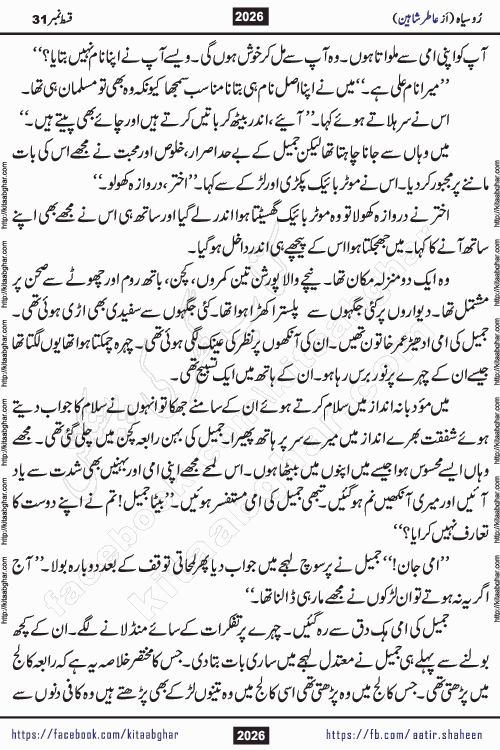 رُوسیاہ (از عاطر شاہین) 2026 قسط نمبر 31
آپ کو اپنی امی سے ملواتا ہوں۔ وہ آپ سے مل کر خوش ہوں گی۔ ویسے آپ نے اپنا نام نہیں بتایا؟‘‘
’’میرا نام علی ہے۔‘‘ میں نے اپنا اصل نام ہی بتانا مناسب سمجھا کیونکہ وہ بھی تو مسلمان ہی تھا۔
اس نے سر ہلاتے ہوئے کہا۔ ’’آیئے، اندر بیٹھ کر باتیں کرتے ہیں اور چائے بھی پیتے ہیں۔‘‘
میں وہاں سے جانا چاہتا تھا لیکن جمیل کے بے حد اصرار، خلوص اور محبت نے مجھے اس کی بات
ماننے پر مجبور کر دیا۔ اس نے موٹر بائیک پکڑی اور لڑکے سے کہا۔ ’’اختر، دروازہ کھولو۔‘‘
اختر نے دروازہ کھولا تو وہ موٹر بائیک گھسیٹتا ہوا اندر لے گیا اور ساتھ ہی اس نے مجھے بھی اپنے
ساتھ آنے کا کہا۔ میں جھجکتا ہوا اس کے پیچھے ہی اندر داخل ہو گیا۔
وہ ایک دو منزلہ مکان تھا۔ نیچے والا پورشن تین کمروں، کچن، باتھ روم اور چھوٹے سے صحن پر
مشتمل تھا۔ دیواروں پر کئی جگہوں سے پلستر اکھڑا ہوا تھا۔ کئی جگہوں سے سفیدی بھی اڑی ہوئی تھی۔
جمیل کی امی ادھیڑ عمر خاتون تھیں۔ ان کی آنکھوں پر نظر کی عینک لگی ہوئی تھی۔ چہرہ چمکتا ہوا یوں لگتا تھا
جیسے ان کے چہرے پر نور برس رہا ہو۔ ان کے ہاتھ میں ایک تسبیح تھی۔
میں مؤدبانہ انداز میں سلام کرتے ہوئے ان کے سامنے جھکا تو انہوں نے سلام کا جواب دیتے
ہوئے شفقت بھرے انداز میں میرے سر پر ہاتھ پھیرا۔ جمیل کی بہن رابعہ کچن میں چلی گئی تھی۔ مجھے
وہاں ایسے محسوس ہوا جیسے میں اپنوں میں بیٹھا ہوں۔ اس لمحے مجھے اپنی امی اور بہنیں بھی شدت سے یاد
آئیں اور میری آنکھیں نم ہو گئیں۔ تبھی جمیل کی امی مستفسر ہوئیں۔ ’’بیٹا جمیل! تم نے اپنے دوست کا
تعارف نہیں کرایا؟‘‘
’’امی جان!‘‘ جمیل نے پرسوچ لہجے میں جواب دیا پھر لمحاتی توقف کے بعد دوبارہ بولا۔ ’’آج
اگر یہ نہ ہوتے تو ان لڑکوں نے مجھے مار ہی ڈالنا تھا۔‘‘
جمیل کی امی ہک دق سے رہ گئیں۔ چہرے پر تفکرات کے سائے منڈلانے لگے۔ ان کے کچھ
بولنے سے پہلے ہی جمیل نے معتدل لہجے میں ساری بات بتا دی۔ جس کا مختصر خلاصہ یہ ہے کہ رابعہ کالج
میں پڑھتی تھی۔ جس کالج میں وہ پڑھتی تھی اسی کالج میں وہ تینوں لڑکے بھی پڑھتے ہیں وہ کافی دنوں سے
https://facebook.com/kitaabghar 2026 https://fb.com/aatir.shaheen
http://kitaabghar.com http://kitaabghar.com http://kitaabghar.com http://kitaabghar.com http://kitaabghar.com http://kitaabghar.com
http://kitaabghar.com http://kitaabghar.com http://kitaabghar.com http://kitaabghar.com http://kitaabghar.com http://kitaabghar.com